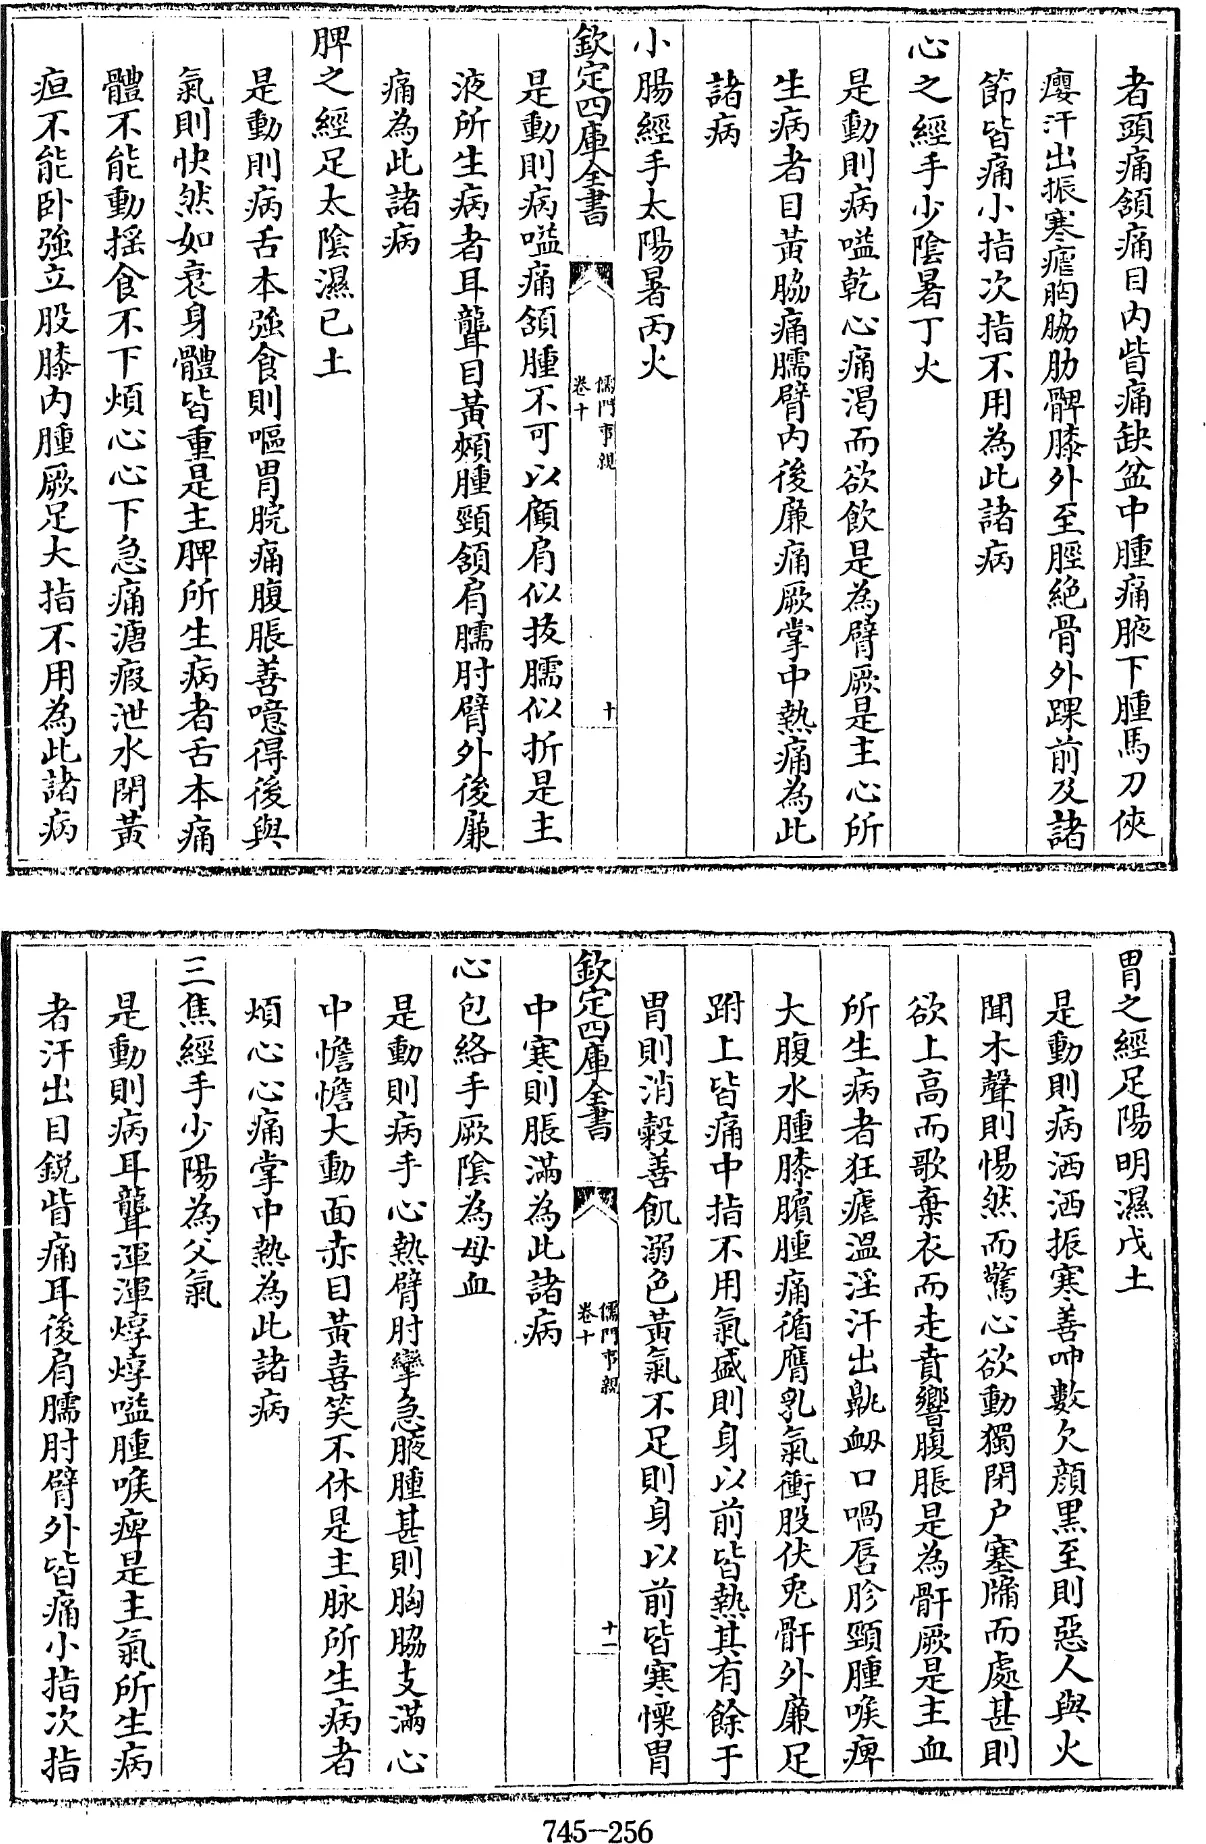 者頭痛頷痛目内眥痛缺盆中腫痛腋下腫馬刀俠
癭汗出振寒瘧胸脇肋髀膝外至脛絶骨外踝前及諸
節皆痛小指次指不用為此諸病
心之經手少陰暑丁火
是動則病嗌乾心痛渴而欲飲是為臂厥是主心所
生病者目黃脇痛臑臂内後廉痛厥掌中熱痛為此
諸病
小腸經手太陽暑丙火
欽定四庫全書
儒門事親
卷十
十
是動則病嗌痛頷腫不可以顧肩似拔臑似折是主
液所生病者耳聾目黃頰腫頸頷肩臑肘臂外後廉
痛為此諸病
脾之經足太陰濕己土
是動則病舌本強食則嘔胃脘痛腹脹善噫得後與
氣則快然如衰身體皆重是主脾所生病者舌本痛
體不能動揺食不下煩心心下急痛溏瘕泄水閉黃
疸不能卧強立股膝内腫厥足大指不用為此諸病
胃之經足陽明濕戊土
是動則病洒洒振寒善呻數欠顔黒至則惡人與火
聞木聲則惕然而驚心欲動獨閉户塞牖而處甚則
欲上高而歌棄衣而走賁響腹脹是為骭厥是主血
所生病者狂瘧溫淫汗出鼽衂口喎唇胗頸腫喉痺
大腹水腫膝臏腫痛循膺乳氣衝股伏兎骭外廉足
跗上皆痛中指不用氣盛則身以前皆熱其有餘于
胃則消穀善飢溺色黃氣不足則身以前皆寒慄胃
欽定四庫全書
儒門事親
卷十
十一
中寒則脹滿為此諸病
心包絡手厥陰為母血
是動則病手心熱臂肘攣急腋腫甚則胸脇支滿心
中憺憺大動面赤目黃喜笑不休是主脉所生病者
煩心心痛掌中熱為此諸病
三焦經手少陽為父氣
是動則病耳聾渾渾焞焞嗌腫喉痺是主氣所生病
者汗出目鋭眥痛耳後肩臑肘臂外皆痛小指次指
745-256